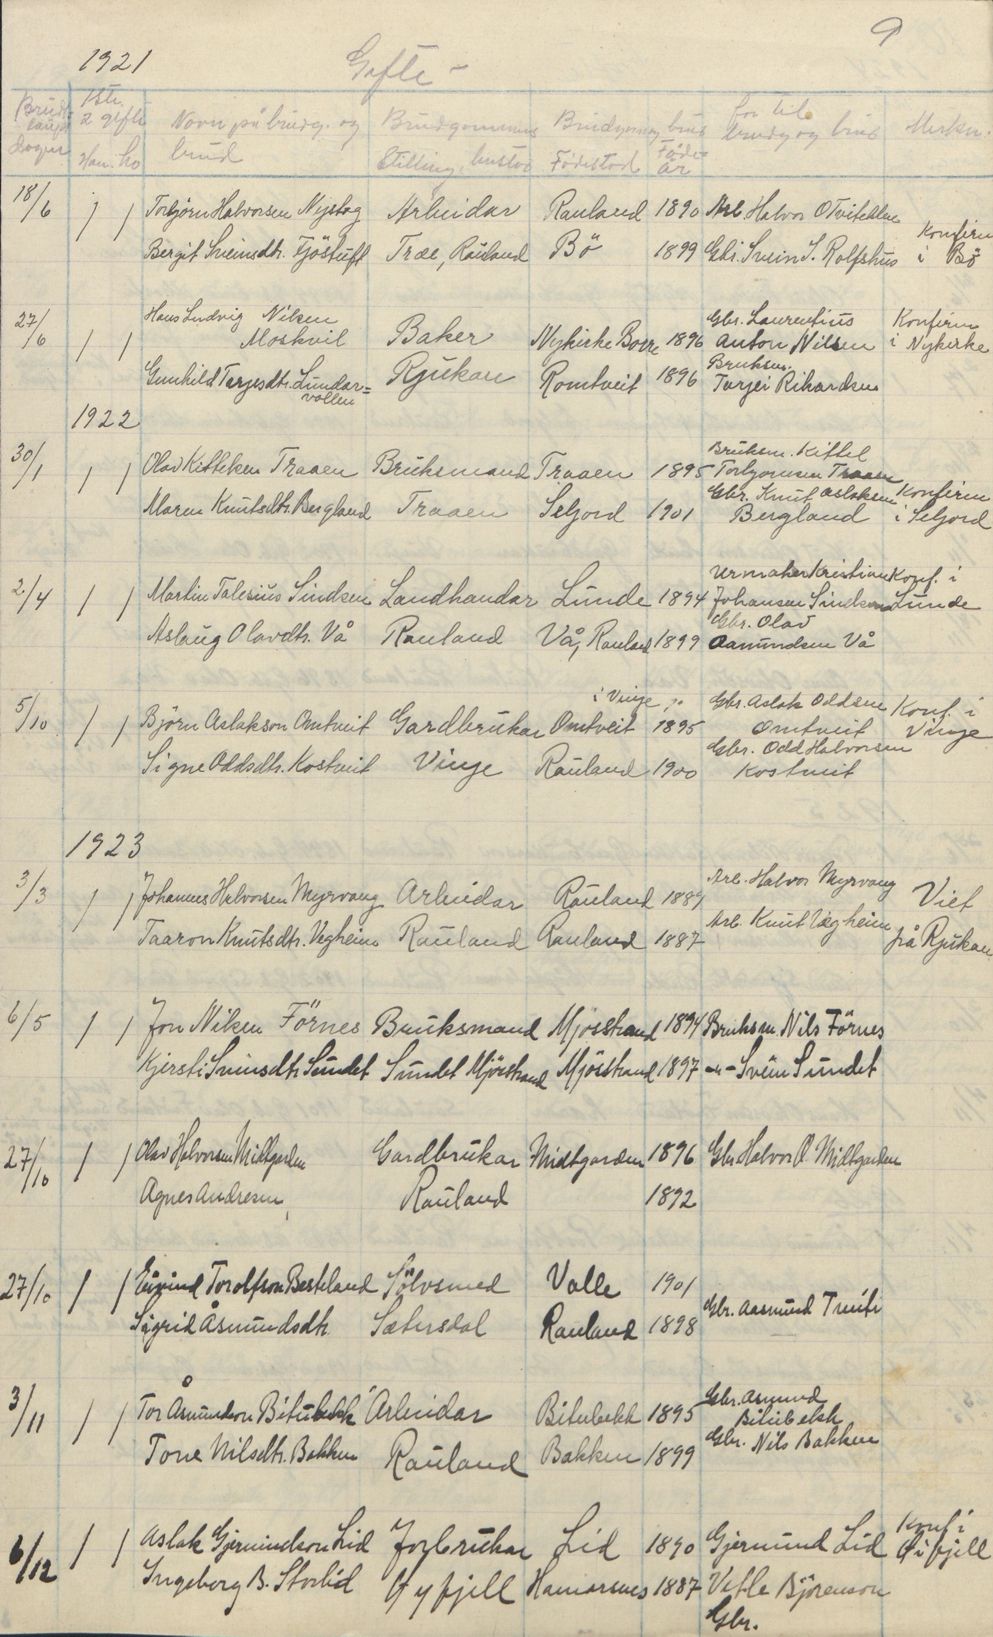 9
1921 Gifte -
Bryllaups dagar 1ste 2 gifte Han. ho Navn på brudg. og brud Brudgommens stilling, bustad Brudgom og brur Fødestad Føde- år far til brudg og brur Merkn.
18/6 1 1 Torbjörn Halvorsen Nystog Arbeidar Rauland 1890 Arb Halvor O Tvitekkne
Bergit Sveinsdtr. Fjöstuft Træe, Rauland Bö 1899 Gbr. Svein S. Rolfshus Konfirm i Bö
27/6 1 1 Hans Ludvig Nilsen Moskvil Baker Nykirke Borre 1896 Gbr. Laurentius Anton Nilsen Konfirm i Nykirke
Gunhild Terjesdtr. Lindar= vollen Rjukan Romtveit 1896 Bruksm. Terjei Rikardsen
1922
30/1 1 1 Olav Kittilsen Traaen Bruksmand Traaen 1895 Bruksm. Kittel Torbjornsen Traaen
Maren Knutsdtr. Bergland Traaen Seljord 1901 Gbr. Knut Aslaksen Bergland Konfirm i Seljord
2/4 1 1 Martin Talesius Sindsen Landhandar Lunde 1894 Urmaker Kristian Johansen Sindsen Konf. i Lunde
Aslaug Olavdtr. Vå Rauland Vå, Rauland 1899 Gbr. Olav Aamundsen Vå
5/10 1 1 Björn Aslakson Omtveit Gardbrukar i Vinje Omtveit 1895 Gbr. Aslak Oddsen Omtveit Konf. i Vinje
Signe Oddsdtr. Kostveit Vinje Rauland 1900 Gbr. Odd Halvorsen Kostveit
1923
3/3 1 1 Johannes Halvorsen Myrvang Arbeidar Rauland 1889 Arb. Halvor Myrvang Viet
Taaron Knutsdtr. Vegheim Rauland Rauland 1887 Arb. Knut Vegheim på Rjukan
6/5 1 1 Jon Nilsen Förnes Bruksmand Mjösstrand 1894 Bruksm. Nils Förnes
Kjersti Sveinsdtr Sundet Sundet Mjösstrand Mjösstrand 1897 -"- Svein Sundet
27/10 1 1 Olav Halvorsen Midtgarden Gardbrukar Midtgarden 1896 Gbr Halvor O. Midtgarden
Agnes Andresen Rauland 1892
27/10 1 1 Eivind Torolfson Besteland Sölvsmed Valle 1901
Sigrid Åsmundsdtr. Sætersdal Rauland 1898 Gbr. Aasmund
3/11 1 1 Tor Åsmundson Bitubekk Arbeidar Bitubekk 1895 Gbr. Asmund Bitubekk
Tone Nilsdtr. Bakken Rauland Bakken 1899 Gbr. Nils Bakken
6/12 1 1 Aslak Gjermundson Lid Jorbrukar Lid 1890 Gjermund Lid Konf i Öifjell
Ingeborg B. Storlid Öyfjell Hamarsnes 1887 Vetle Björenson
Gbr.